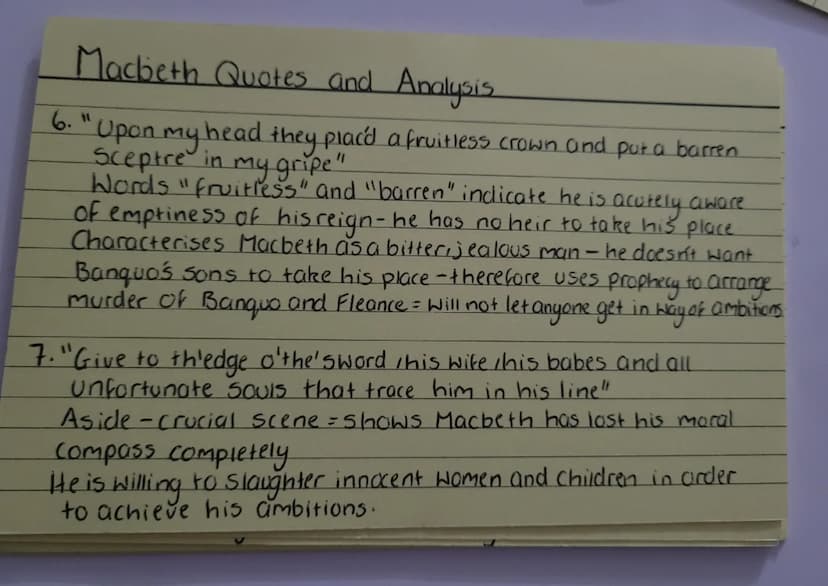 Macbeth Quotes and Analysis
6. "Upon my head they plac'd a fruitless crown and put a barren
sceptre in my gripe"
Words "fruitless" and "barren" indicate he is acutely aware
of emptiness of his reign - he has no heir to take his place
Characterises Macbeth as a bitter, jealous man - he doesn't want
Banquo's sons to take his place - therefore uses prophecy to arrange
murder of Banquo and Fleance = will not let anyone get in way of ambitions
7. "Give to th'edge o'the'sword, his wife, his babes and all
unfortunate souls that trace him in his line"
Aside - crucial scene = shows Macbeth has lost his moral
compass completely
He is willing to slaughter innocent women and children in order
to achieve his ambitions.